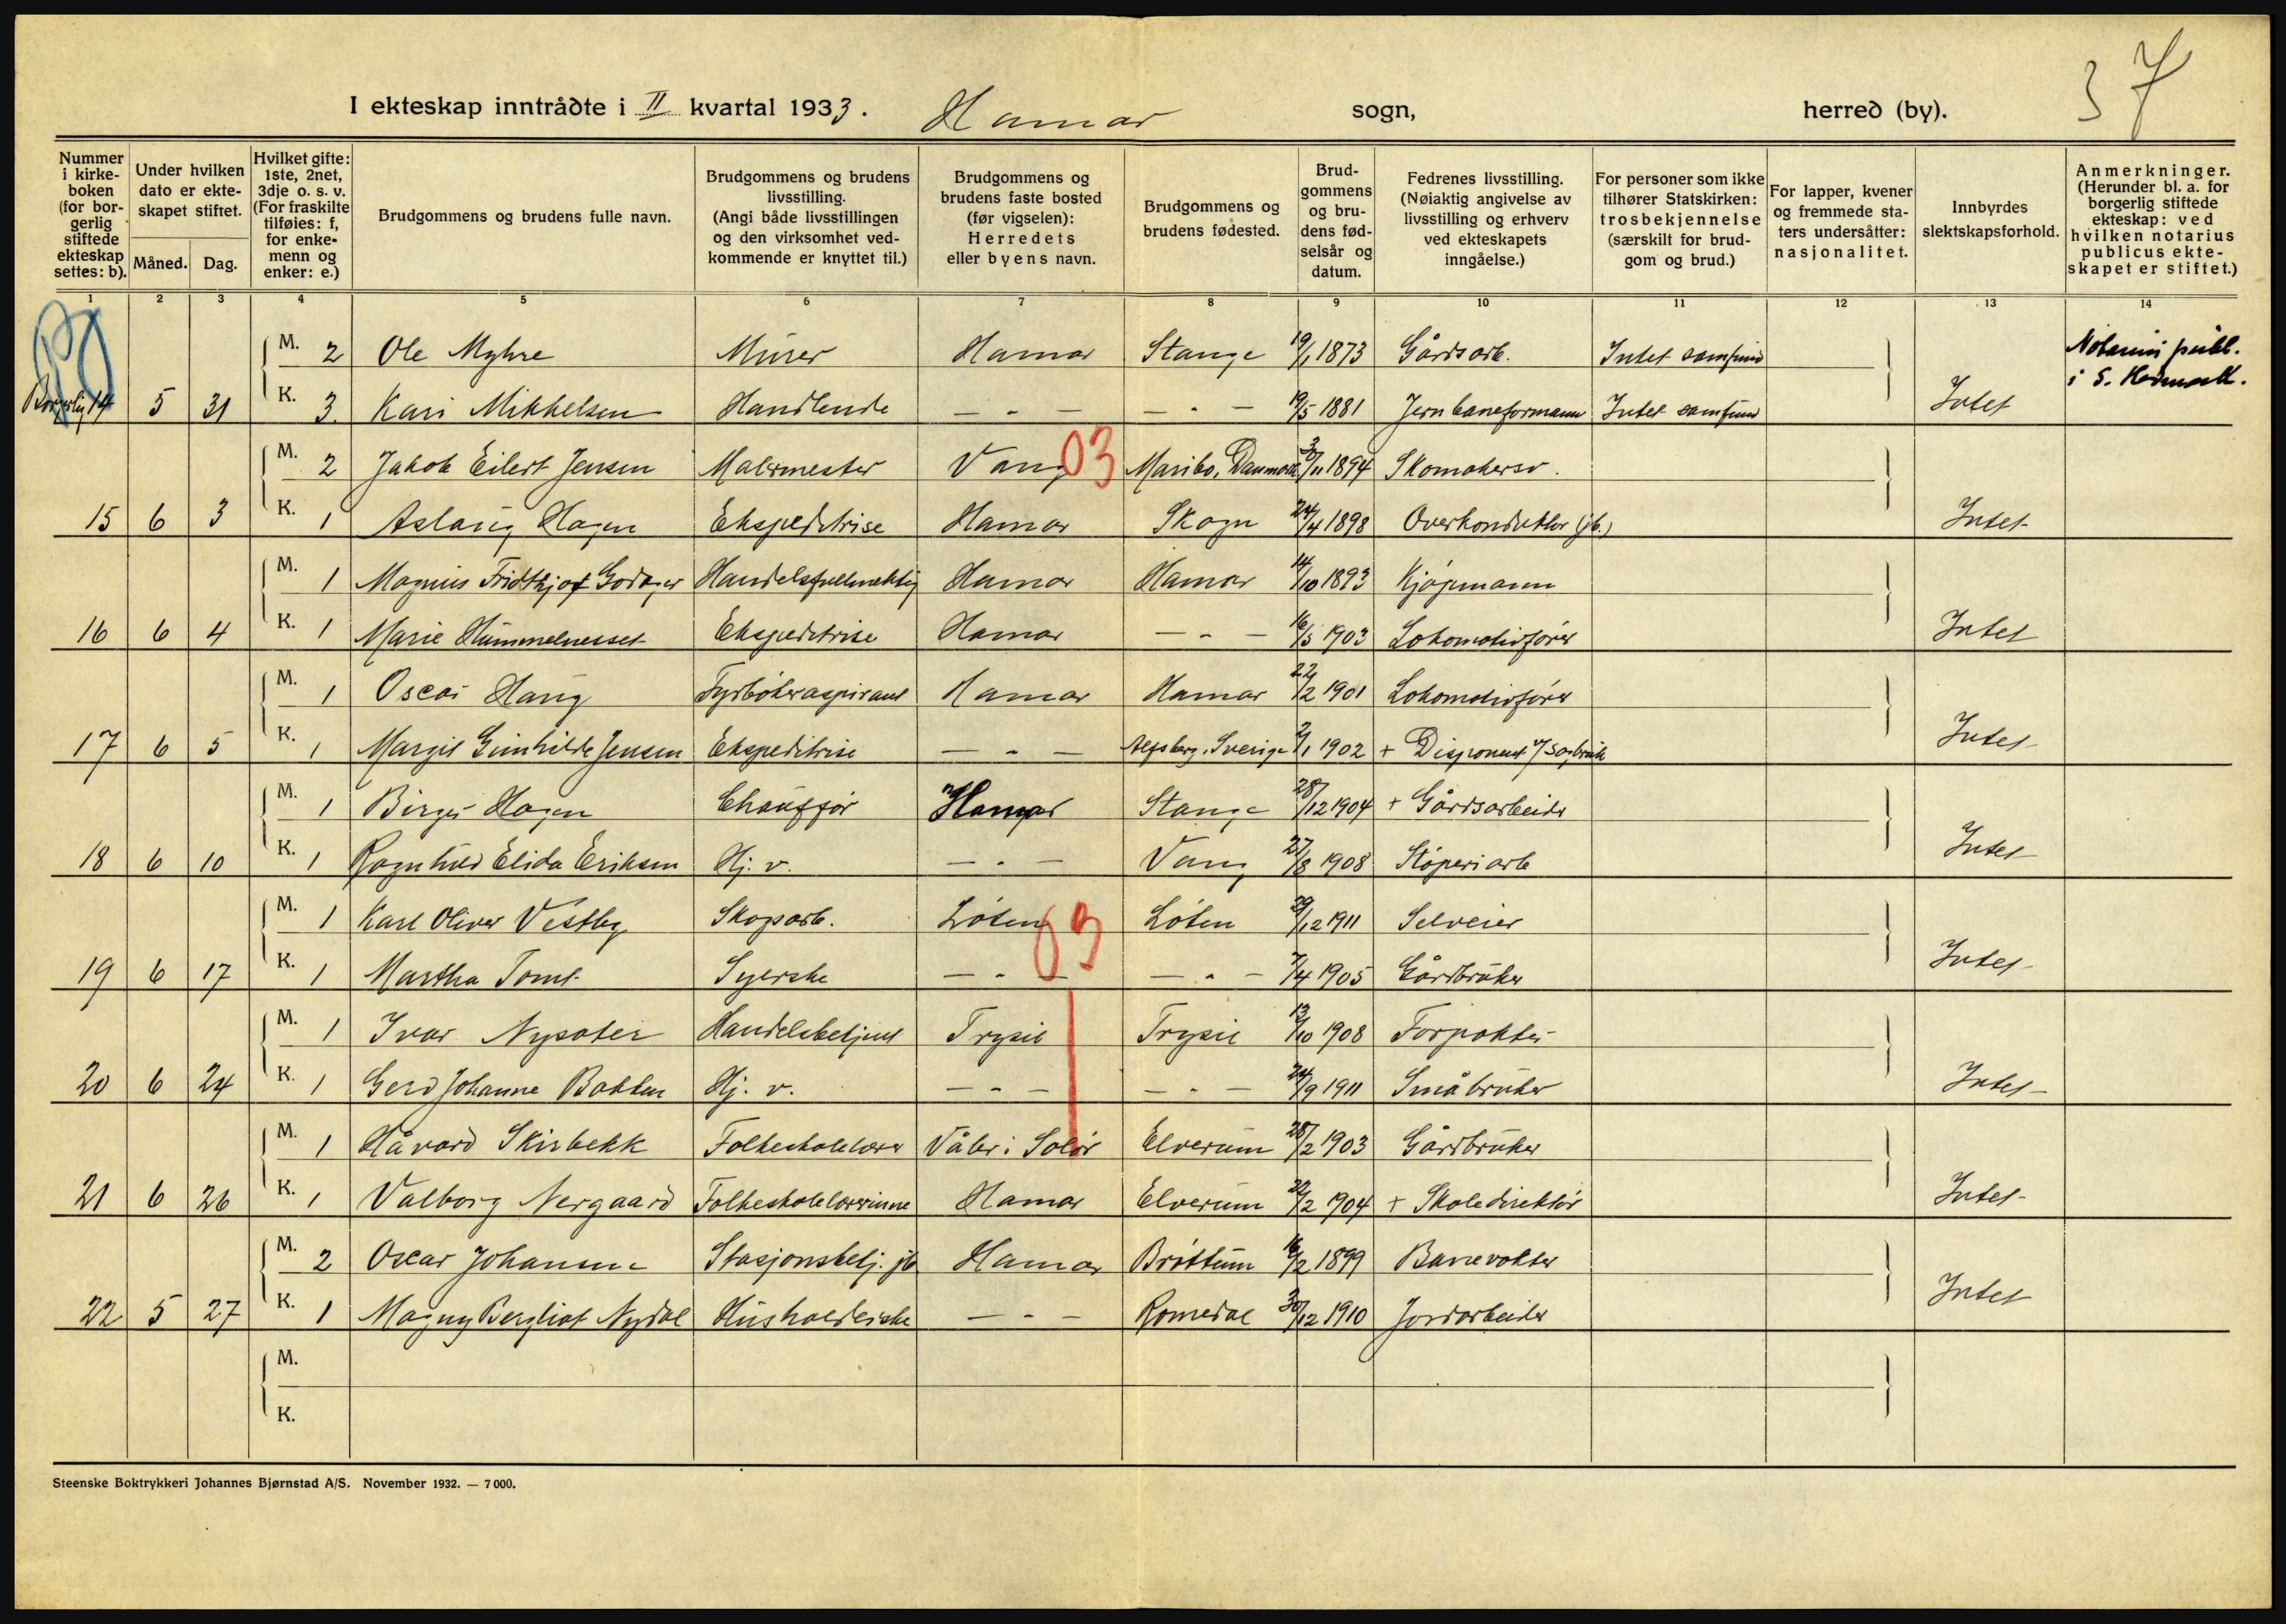 37
I ekteskap inntrådte i II kvartal 1933. Hamar sogn, herred (by).
Nummer i kirkeboken (for borgerlig stiftede ekteskap settes: b).
Under hvilken dato er ekteskapet stiftet.
Måned. Dag.
Hvilket gifte: 1ste, 2net, 3dje o. s. v. (For fraskilte tilføies: f, for enkemenn og enker: e.)
Brudgommens og brudens fulle navn.
Brudgommens og brudens livsstilling. (Angi både livsstillingen og den virksomhet vedkommende er knyttet til.)
Brudgommens og brudens faste bosted (før vigselen): Herredets eller byens navn.
Brudgommens og brudens fødested.
Brudgommens og brudens fødselsår og datum.
Fedrenes livsstilling. (Nøiaktig angivelse av livsstilling og erhverv ved ekteskapets inngåelse.)
For personer som ikke tilhører Statskirken: trosbekjennelse (særskilt for brudgom og brud.)
For lapper, kvener og fremmede staters undersåtter: nasjonalitet.
Innbyrdes slektskapsforhold.
Anmerkninger. (Herunder bl. a. for borgerlig stiftede ekteskap: ved hvilken notarius publicus ekteskapet er stiftet.)
1 2 3 4 5 6 7 8 9 10 11 12 13 14
M. 2 Ole Myhre Murer Hamar Stange 19/1 1873 Gårdsarb. Intet samfund Notarius publ. i S. Hedmark.
Borgerlig 14 5 31 K. 3. Kari Mikkelsen Handlende — " — — " — 19/5 1881 Jernbaneformann Intet samfund Intet
M. 2 Jakob Eilert Jensen Malermester Vang 03 Maribo, Danmark 3/11 1894 Skomakersv.
15 6 3 K. 1 Aslaug Hagen Ekspeditrise Hamar Skogn 24/4 1898 Overkonduktør (jb.) Intet
M. 1 Magnus Fridthjof Godager Handelsfullmektig Hamar Hamar 14/10 1893 Kjøpmann
16 6 4 K. 1 Marie Hummelnesset Ekspeditrise Hamar — " — 16/5 1903 Lokomotivfører Intet
M. 1 Oscar Haug Fyrbøteraspirant Hamar Hamar 22/2 1901 Lokomotivfører
17 6 5 K. 1 Margit Gunhilde Jensen Ekspeditrise — " — Sverige 1902 + Disponent v/ sagbruk Intet
M. 1 Birger Hagen Chauffør Hamar Stange 28/12 1904 + Gårdsarbeider
18 6 10 K. 1 Ragnhild Elida Eriksen Hj. v. — " — Vang 27/8 1908 Støperiarb Intet
M. 1 Karl Oliver Vestby Skogsarb. Løten 03 Løten 29/12 1911 Selveier
19 6 17 K. 1 Martha Tomt Syerske — " — — " — 7/4 1905 Gårdbruker Intet
M. 1 Ivar Nysæter Handelsbetjent Trysil Trysil 13/10 1908 Forpakter
20 6 24 K. 1 Gerd Johanne Bakken Hj. v. — " — — " — 24/9 1911 Småbruker Intet
M. 1 Håvard Skirbekk Folkeskolelærer Våler i Solør Elverum 28/2 1903 Gårdbruker
21 6 26 K. 1 Valborg Nergaard Folkeskolelærerinne Hamar Elverum 22/2 1904 + Skoledirektør Intet
M. 2 Oscar Johansen Stasjonsbetj. jb Hamar Brøttum 16/2 1899 Banevokter
22 5 27 K. 1 Magny Bergliot Nydal Husholderske — " — Romedal 30/12 1910 Jordarbeider Intet
M.
K.
Steenske Boktrykkeri Johannes Bjørnstad A/S. November 1932. — 7000.